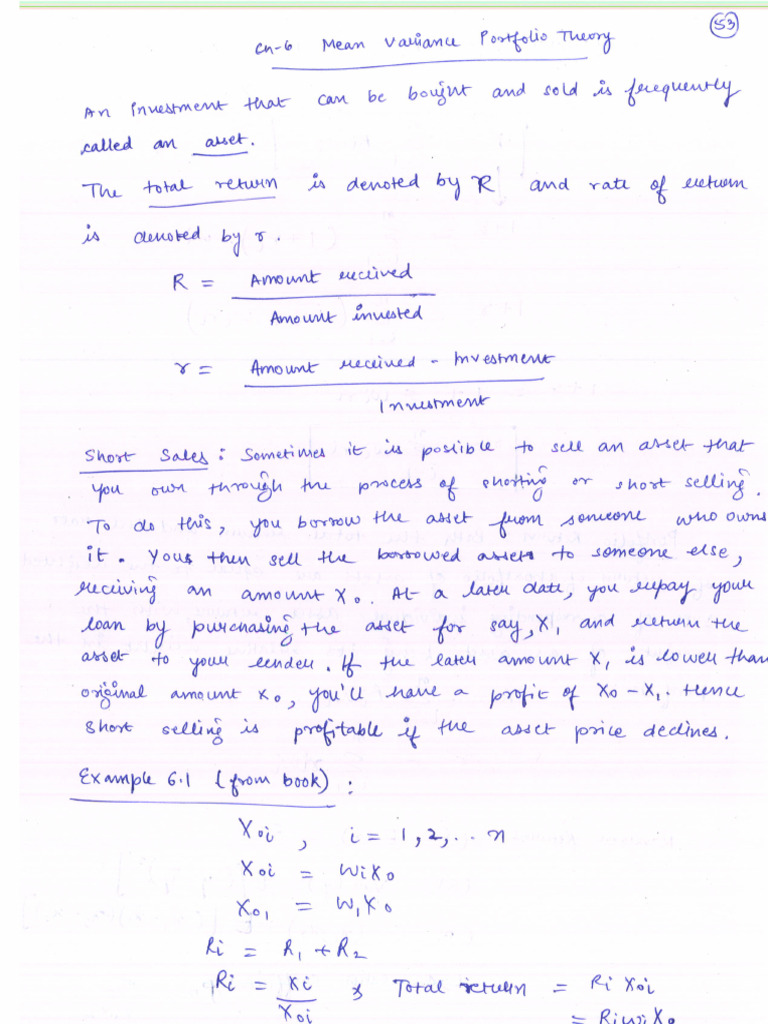 53
Ch-6 Mean Variance Portfolio Theory
An investment that can be bought and sold is frequently
called an asset.
The total return is denoted by R and rate of return
is denoted by r.
R = Amount received
Amount invested
r = Amount received - Investment
Investment
Short Sales : Sometimes it is posible to sell an asset that
you own through the process of shorting or short selling.
To do this, you borrow the asset from someone who owns
it. Yous then sell the borrowed assets to someone else,
receiving an amount X0. At a later date, you repay your
loan by purchasing the asset for say, X1 and return the
asset to your lender. If the later amount X1 is lower than
original amount X0, you'll have a profit of X0 - X1. Hence
Short selling is profitable if the asset price declines.
Example 6.1 (from book) :
X0i , i = 1, 2, .. n
X0i = WiX0
X01 = W1X0
Ri = R1 + R2
Ri = Xi Total return = Ri X0i
X0i = RiwiX0